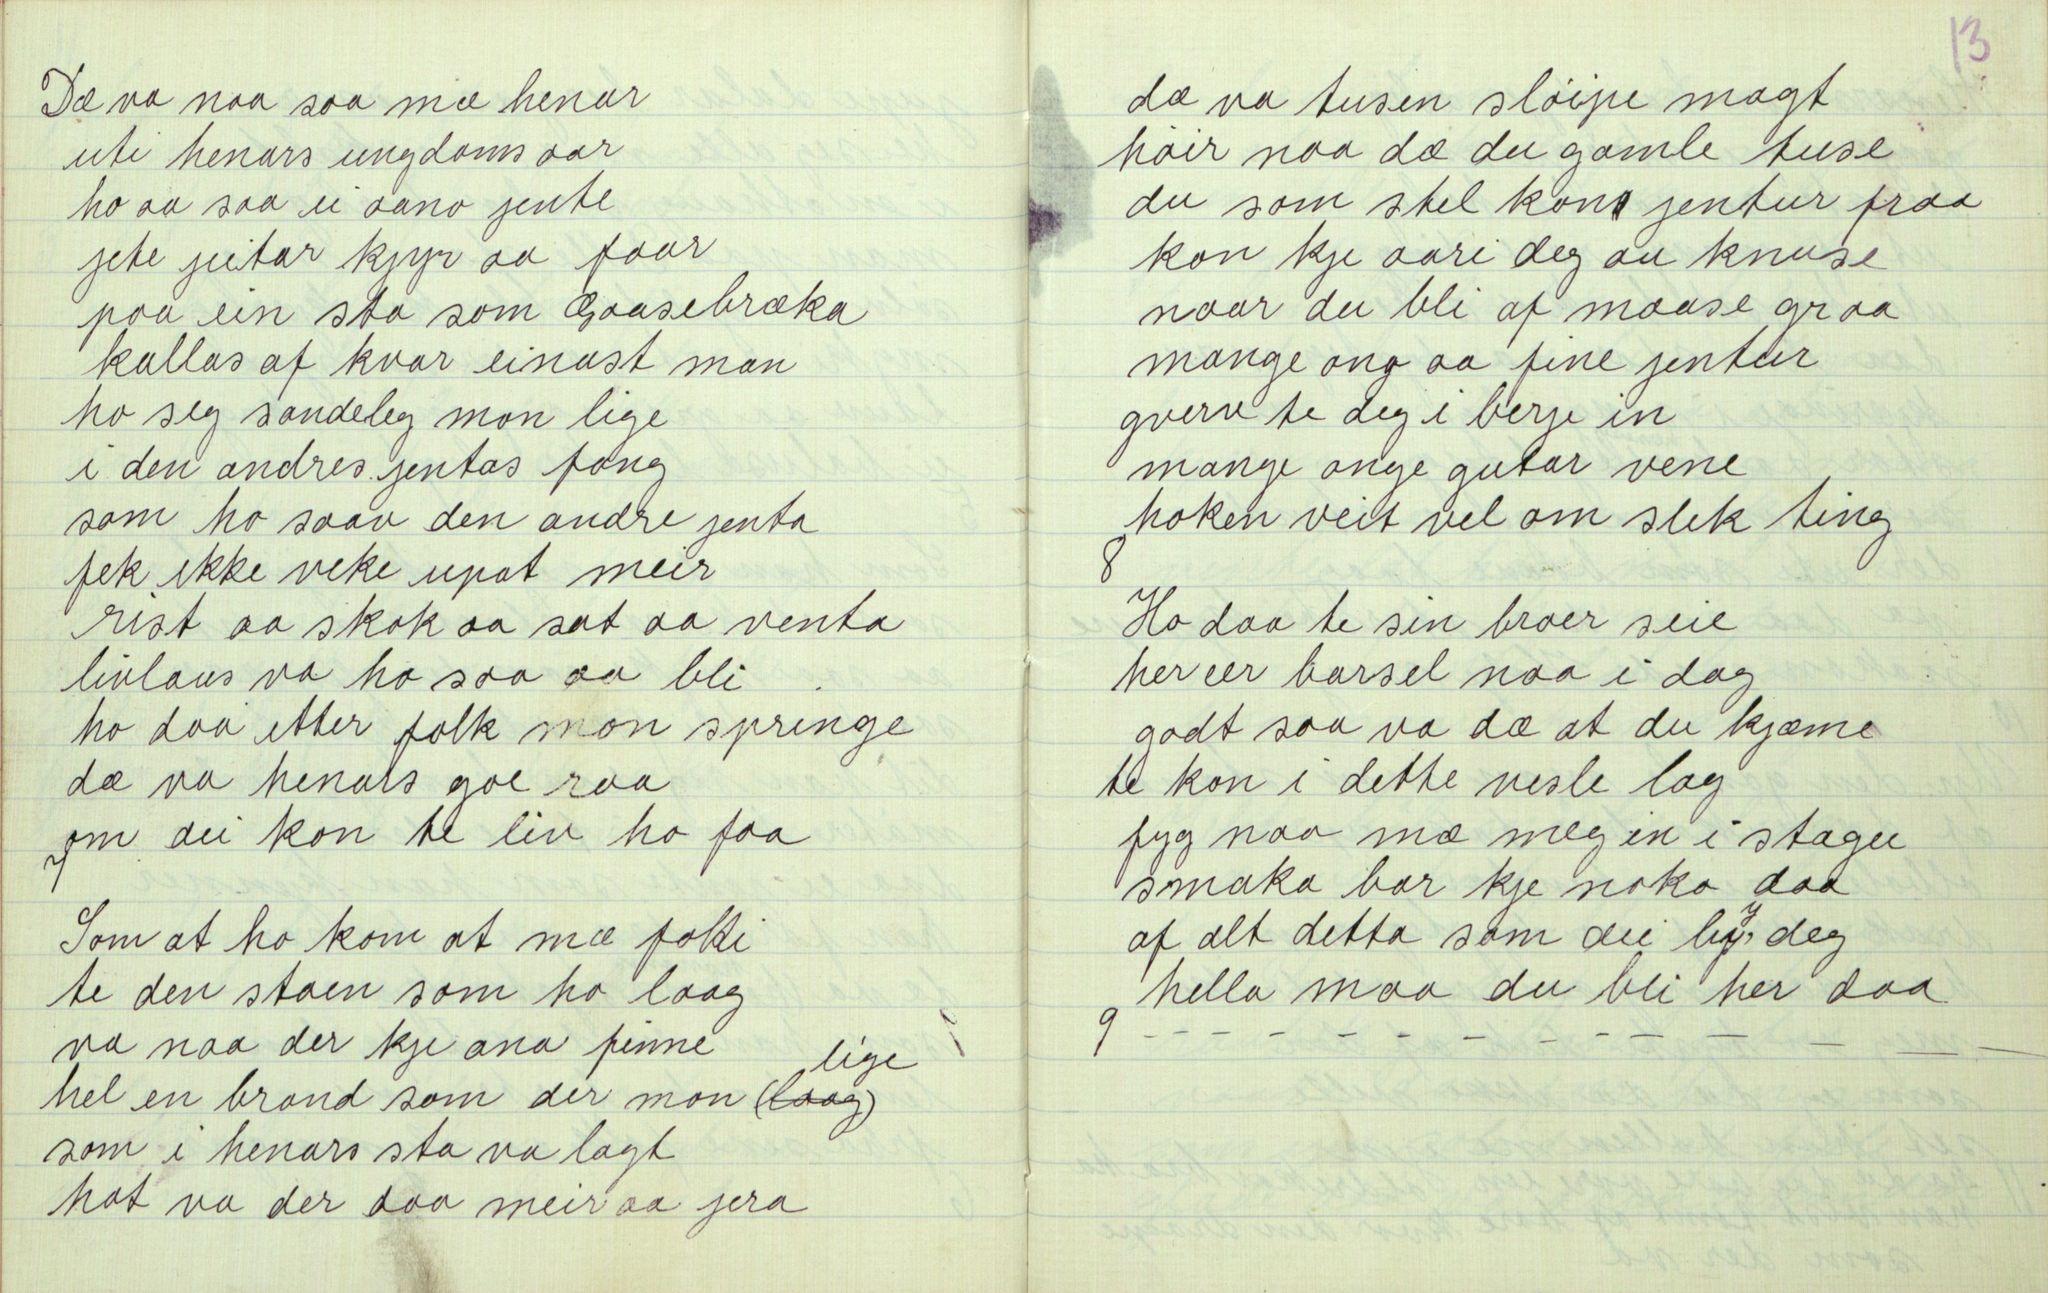 Dæ va naa saa mæ henar
uti henars ungdoms aar
ho aa saa ei aano jente
jete jeitar kjyr aa faar
paa ein sta som Gaasebræka
kallas af kvar einast man
ho seg sandeleg mon lige
i den andres jentas fang
som ho saav den andre jenta
fek ikke veke upat meir
rist aa skok aa sat aa venta
livlaus va ho saa aa bli
ho daa etter folk mon springe
dæ va henars goe raa
om dei kon te liv ho faa
7
Som at ho kom at mæ folki
te den staen som ho laag
va naa der kje ana finne
lige
hel en brand som der mon (laag)
som i henars sta va lagt
hat va der daa meir aa jera
13
dæ va tusen slöipe magt
höir naa dæ du gamle tuse
du som stel kons jentur fraa
kon kje aari deg au knuse
naar du bli af maase graa
mange ong aa fine jentur
gverv te deg i berje in
mange onge gutar vene
hoken veit vel om slek ting
8
Ho daa te sin broer seie
her eer barsel naa i dag
godt saa va dæ at du kjæme
te kon i dette vesle lag
fyg naa mæ meg in i stagu
smaka bar kje noko daa
af alt detta som dei by deg
hella maa du bli her daa
9 - - - - - - - - - - - - -